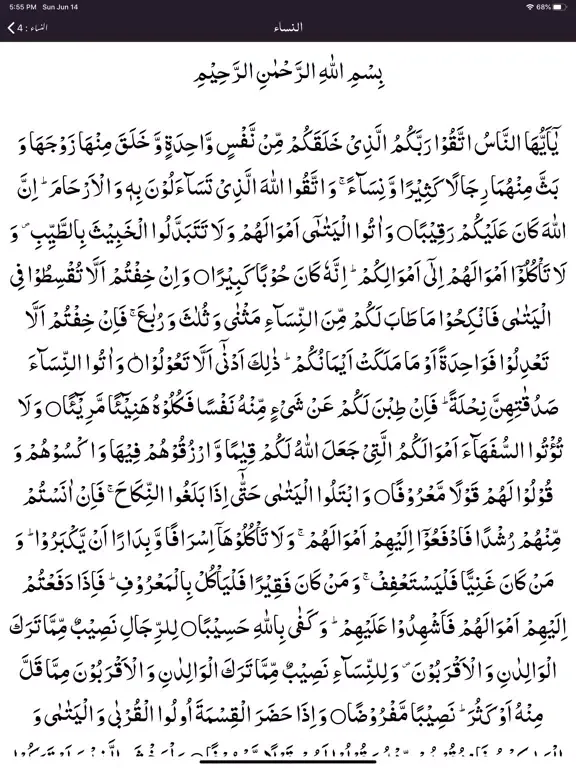 5:55 PM Sun Jun 14 68%
النساء : 4
النساء
بِسْمِ اللّٰهِ الرَّحْمٰنِ الرَّحِيْمِ
يٰۤاَيُّهَا النَّاسُ اتَّقُوْا رَبَّكُمُ الَّذِىْ خَلَقَكُمْ مِّنْ نَّفْسٍ وَّاحِدَةٍ وَّخَلَقَ مِنْهَا زَوْجَهَا وَ
بَثَّ مِنْهُمَا رِجَالًا كَثِيْرًا وَّنِسَآءً‌ ۚ وَاتَّقُوا اللّٰهَ الَّذِىْ تَسَآءَلُوْنَ بِهٖ وَالْاَرْحَامَ‌ ؕ اِنَّ
اللّٰهَ كَانَ عَلَيْكُمْ رَقِيْبًا‏○ وَاٰتُوا الْيَتٰمٰٓى اَمْوَالَهُمْ‌ وَلَا تَتَبَدَّلُوا الْخَبِيْثَ بِالطَّيِّبِ ۖ وَ
لَا تَاْكُلُوْۤا اَمْوَالَهُمْ اِلٰٓى اَمْوَالِكُمْ‌ ؕ اِنَّهٗ كَانَ حُوْبًا كَبِيْرًا‏○ وَاِنْ خِفْتُمْ اَلَّا تُقْسِطُوْا فِى
الْيَتٰمٰى فَانْكِحُوْا مَا طَابَ لَكُمْ مِّنَ النِّسَآءِ مَثْنٰى وَثُلٰثَ وَرُبٰعَ‌ ۚ فَاِنْ خِفْتُمْ اَلَّا
تَعْدِلُوْا فَوَاحِدَةً اَوْ مَا مَلَكَتْ اَيْمَانُكُمْ‌ ؕ ذٰلِكَ اَدْنٰٓى اَلَّا تَعُوْلُوْا○ وَاٰتُوا النِّسَآءَ
صَدُقٰتِهِنَّ نِحْلَةً‌ ؕ فَاِنْ طِبْنَ لَكُمْ عَنْ شَىْءٍ مِّنْهُ نَفْسًا فَكُلُوْهُ هَنِيْٓئًا مَّرِيْٓئًا‏○ وَلَا
تُؤْتُوا السُّفَهَآءَ اَمْوَالَكُمُ الَّتِىْ جَعَلَ اللّٰهُ لَكُمْ قِيٰمًا وَّارْزُقُوْهُمْ فِيْهَا وَاكْسُوْهُمْ وَ
قُوْلُوْا لَهُمْ قَوْلًا مَّعْرُوْفًا‏○ وَابْتَلُوا الْيَتٰمٰى حَتّٰٓى اِذَا بَلَغُوا النِّكَاحَ‌ ۚ فَاِنْ اٰنَسْتُمْ
مِّنْهُمْ رُشْدًا فَادْفَعُوْۤا اِلَيْهِمْ اَمْوَالَهُمْ‌ۚ وَلَا تَاْكُلُوْهَاۤ اِسْرَافًا وَّبِدَارًا اَنْ يَّكْبَرُوْا‌ ؕ وَ
مَنْ كَانَ غَنِيًّا فَلْيَسْتَعْفِفْ‌ ۚ وَمَنْ كَانَ فَقِيْرًا فَلْيَاْكُلْ بِالْمَعْرُوْفِ‌ ؕ فَاِذَا دَفَعْتُمْ
اِلَيْهِمْ اَمْوَالَهُمْ فَاَشْهِدُوْا عَلَيْهِمْ‌ ؕ وَكَفٰى بِاللّٰهِ حَسِيْبًا‏○ لِلرِّجَالِ نَصِيْبٌ مِّمَّا تَرَكَ
الْوَالِدٰنِ وَالْاَقْرَبُوْنَ ۖ وَلِلنِّسَآءِ نَصِيْبٌ مِّمَّا تَرَكَ الْوَالِدٰنِ وَالْاَقْرَبُوْنَ مِمَّا قَلَّ
مِنْهُ اَوْ كَثُرَ ‌ؕ نَصِيْبًا مَّفْرُوْضًا‏○ وَاِذَا حَضَرَ الْقِسْمَةَ اُولُوا الْقُرْبٰى وَالْيَتٰمٰى وَ